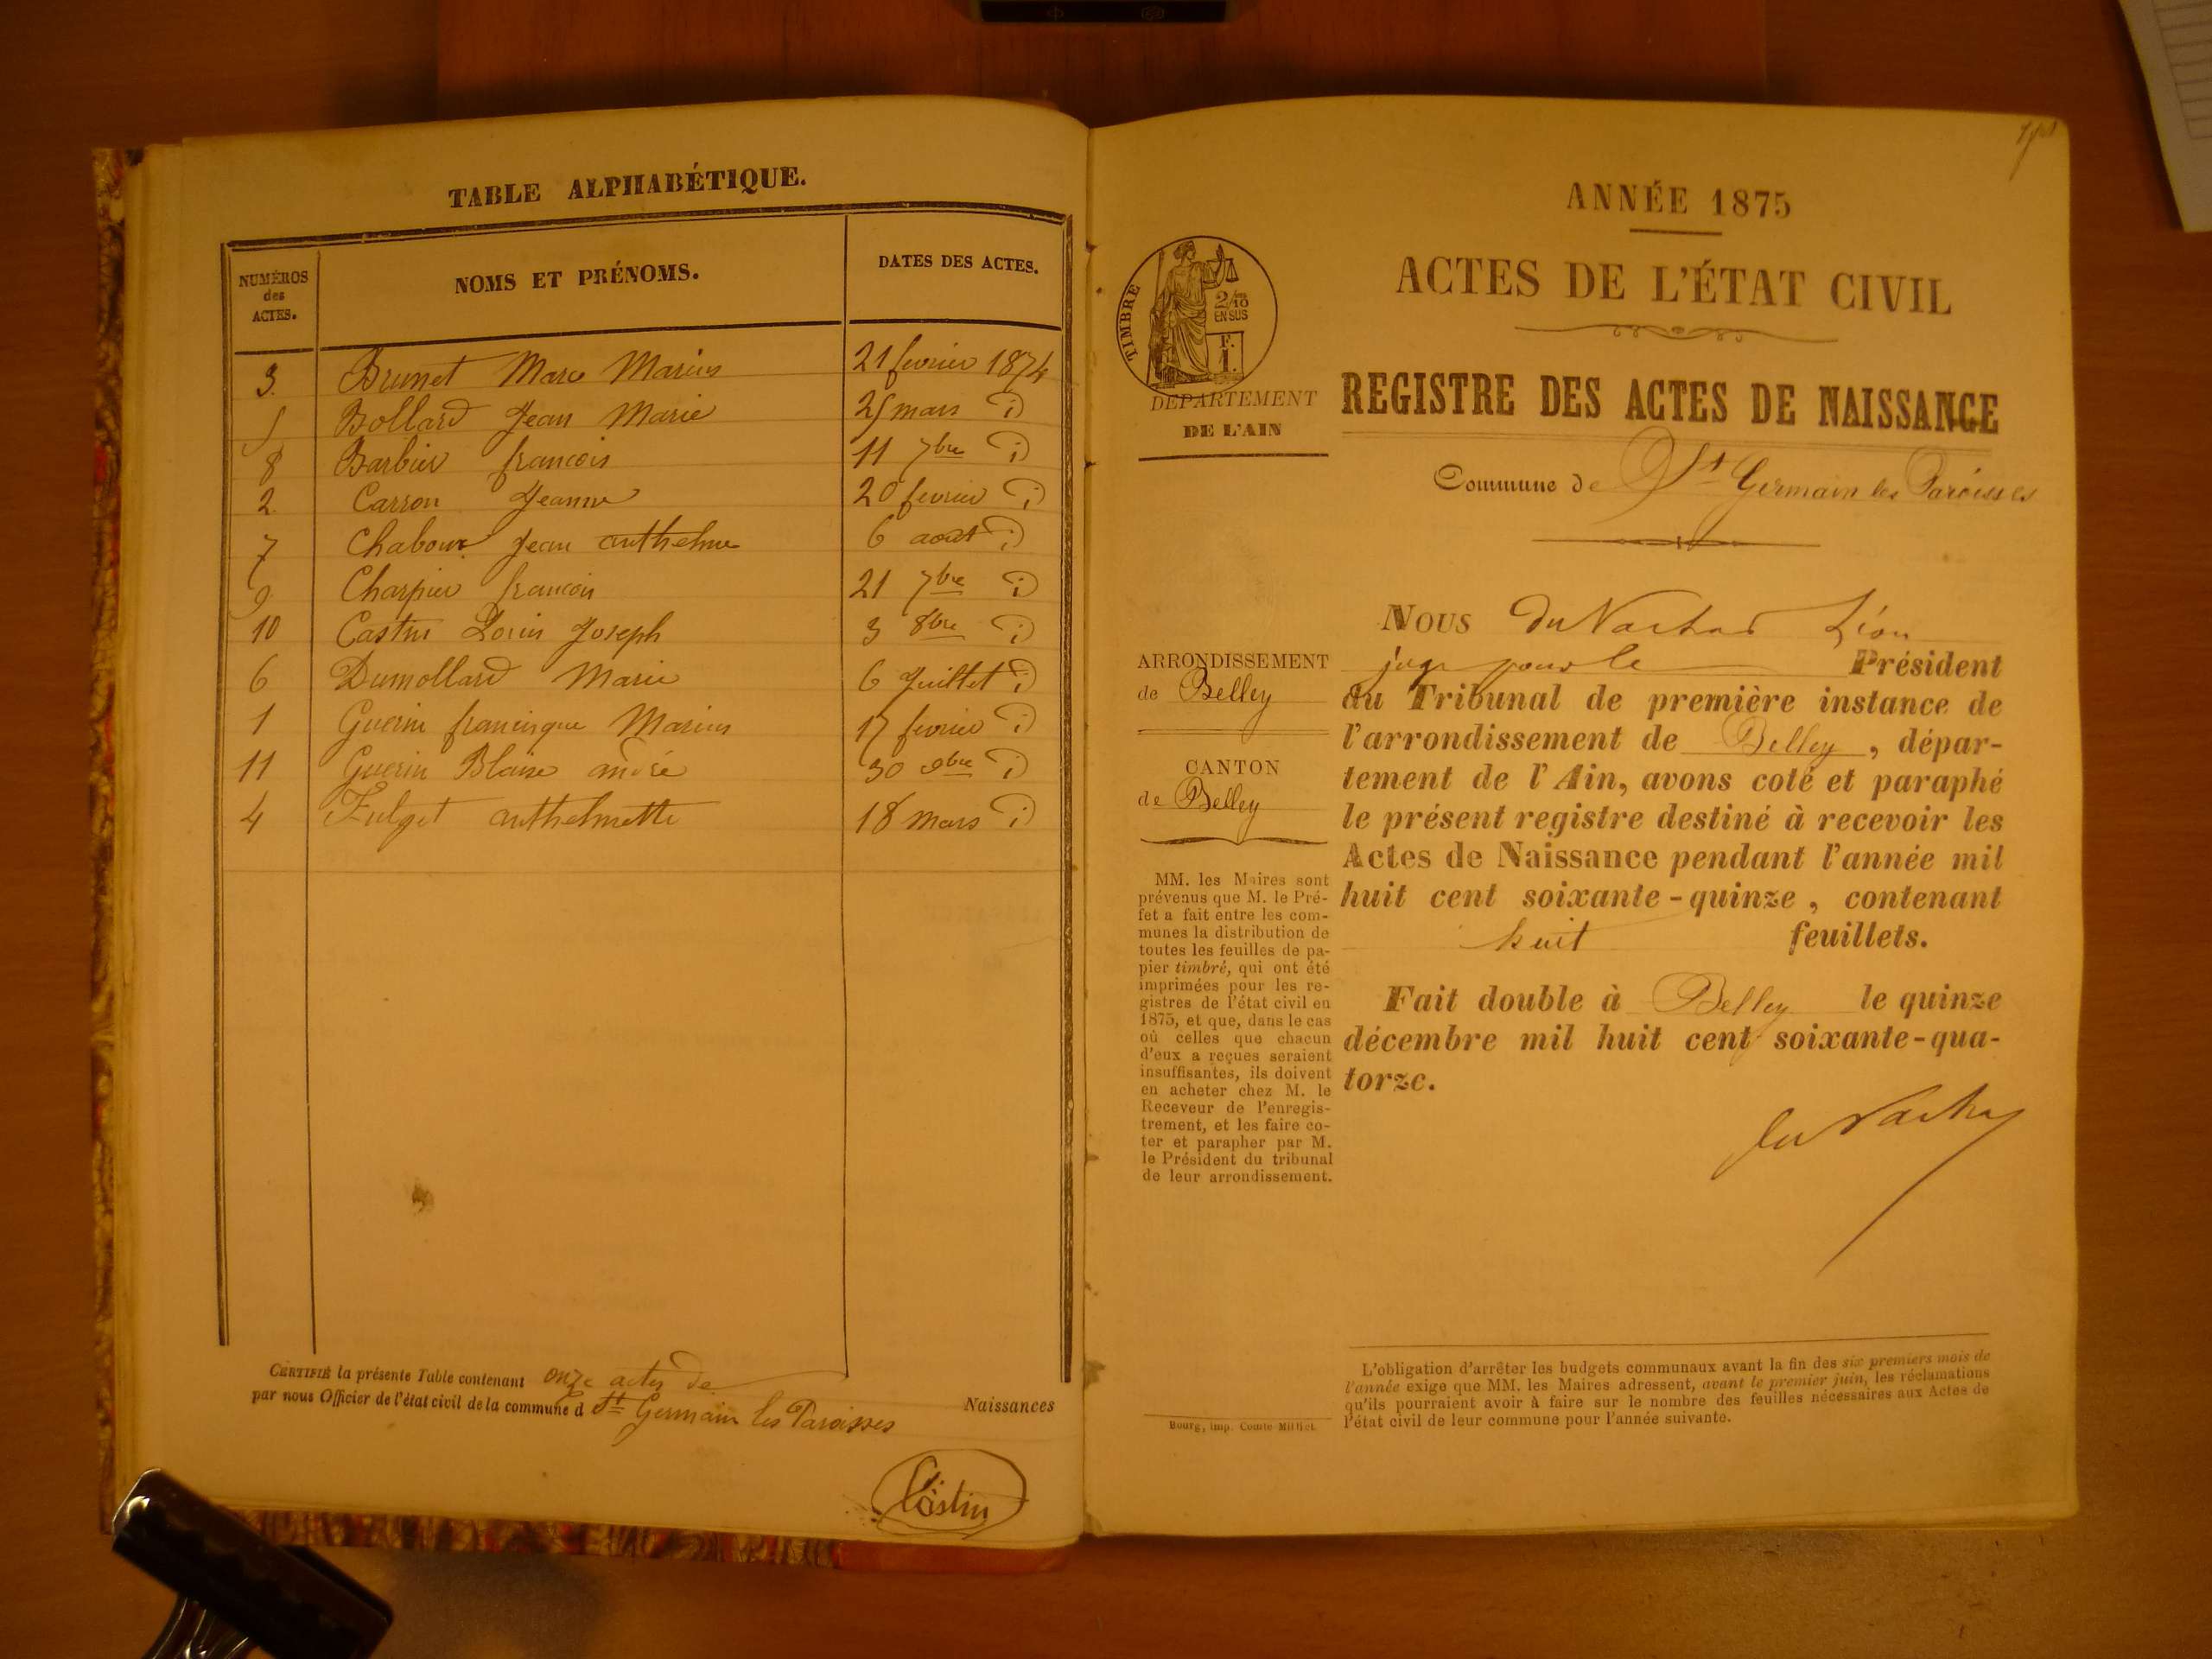 TABLE ALPHABÉTIQUE.
NUMÉROS des ACTES. NOMS ET PRÉNOMS. DATES DES ACTES.
3. Brunet Marc Marius 21 fevrier 1874
5 Bollard Jean Marie 25 mars d
8 Barbier francois 11 7bre d
2. Carron Jeanne 20 fevrier d
7 Chaboux Jean anthelme 6 aout d
9. Charpier francois 21 7bre d
10 Castin Louis Joseph 3 8bre d
6 Dumollard Marie 6 Juillet d
1 Guerin francisque Marius 17 fevrier d
11 Guerin Blaise andré 30 9bre d
4 anthelmette 18 mars d
CERTIFIÉ la présente Table contenant onze actes de Naissances
par nous Officier de l'état civil de la commune d St Germain les Paroisses
Castin
ANNÉE 1875
ACTES DE L'ÉTAT CIVIL
TIMBRE
2/10 EN SUS
F. 1.
DÉPARTEMENT
DE L'AIN
REGISTRE DES ACTES DE NAISSANCE
Commune de St Germain les Paroisses
ARRONDISSEMENT
de Belley
CANTON
de Belley
MM. les Maires sont
prévenus que M. le Pré-
fet a fait entre les com-
munes la distribution de
toutes les feuilles de pa-
pier timbré, qui ont été
imprimées pour les re-
gistres de l'état civil en
1875, et que, dans le cas
où celles que chacun
d'eux a reçues seraient
insuffisantes, ils doivent
en acheter chez M. le
Receveur de l'enregis-
trement, et les faire co-
ter et parapher par M.
le Président du tribunal
de leur arrondissement.
NOUS Léon
juge pour le Président
du Tribunal de première instance de
l'arrondissement de Belley, dépar-
tement de l'Ain, avons coté et paraphé
le présent registre destiné à recevoir les
Actes de Naissance pendant l'année mil
huit cent soixante-quinze, contenant
huit feuillets.
Fait double à Belley le quinze
décembre mil huit cent soixante-qua-
torze.
L'obligation d'arrêter les budgets communaux avant la fin des six premiers mois de
l'année exige que MM. les Maires adressent, avant le premier juin, les réclamations
qu'ils pourraient avoir à faire sur le nombre des feuilles nécessaires aux Actes de
l'état civil de leur commune pour l'année suivante.
Bourg, imp. Comte-Milliet.